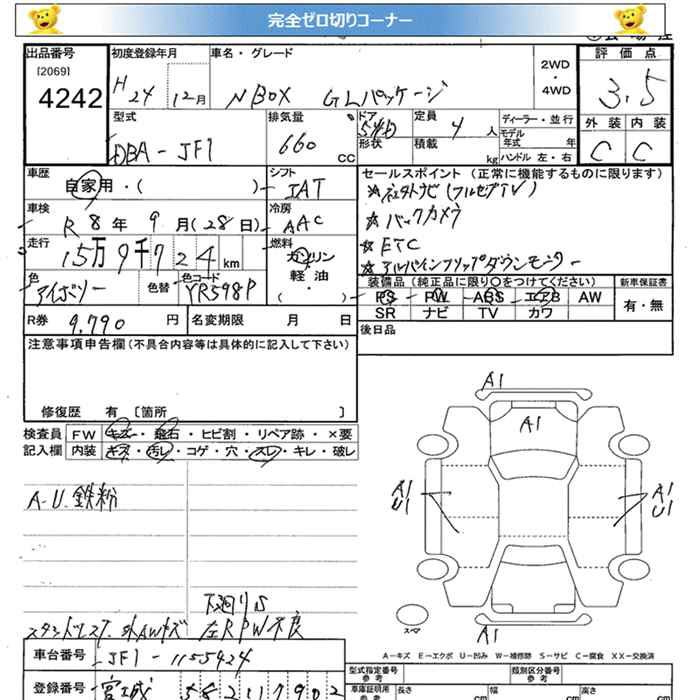 完全ゼロ切りコーナー
出品番号
[2069]
4242
初度登録年月
H 24 12月
車名・グレード
N BOX GLパッケージ
2WD
・
4WD
評価点
3.5
外装 内装
C C
型式
DBA - JF1
排気量
660 cc
ドア
形状
定員 4 人
積載 kg
ディーラー・並行
モデル
年式 年
ハンドル 左・右
車歴
自家用・( )
シフト
IAT
セールスポイント (正常に機能するものに限ります)
☆社外ナビ(フルセグTV)
☆バックカメラ
☆ETC
☆アルパインフリップダウンモニター
車検
R 8年 9月(28日)
冷房
AAC
走行
15万9千724km
燃料
ガソリン
軽・油
( ・ )
色
アイボリー
色替
色コード
YR598P
装備品(純正品に限り○をつけてください)
新車保証書
PS PW ABS エアB AW
SR ナビ TV カワ
有・無
R券 9,790 円
名変期限 月 日
後日品
注意事項申告欄(不具合内容等は具体的に記入して下さい)
修復歴 有 [箇所 ]
検査員
記入欄
FW キズ・飛石・ヒビ割・リペア跡・×要
内装 キズ・汚レ・コゲ・穴・スレ・キレ・破レ
A-U.鉄粉
下廻りS
スタッドレス7. 外AWキズ 左RPW不良
A1
A1
A1
U1
A1
U1
A1
スペア
A-キズ E-エクボ U-凹み W-補修跡 S-サビ C-腐食 XX-交換済
車台番号 JF1-1155424
登録番号 宮城 582 い 7902
型式指定番号
参考
類別区分番号
参考
車庫証明用
参考
長さ cm
幅 cm
高さ cm